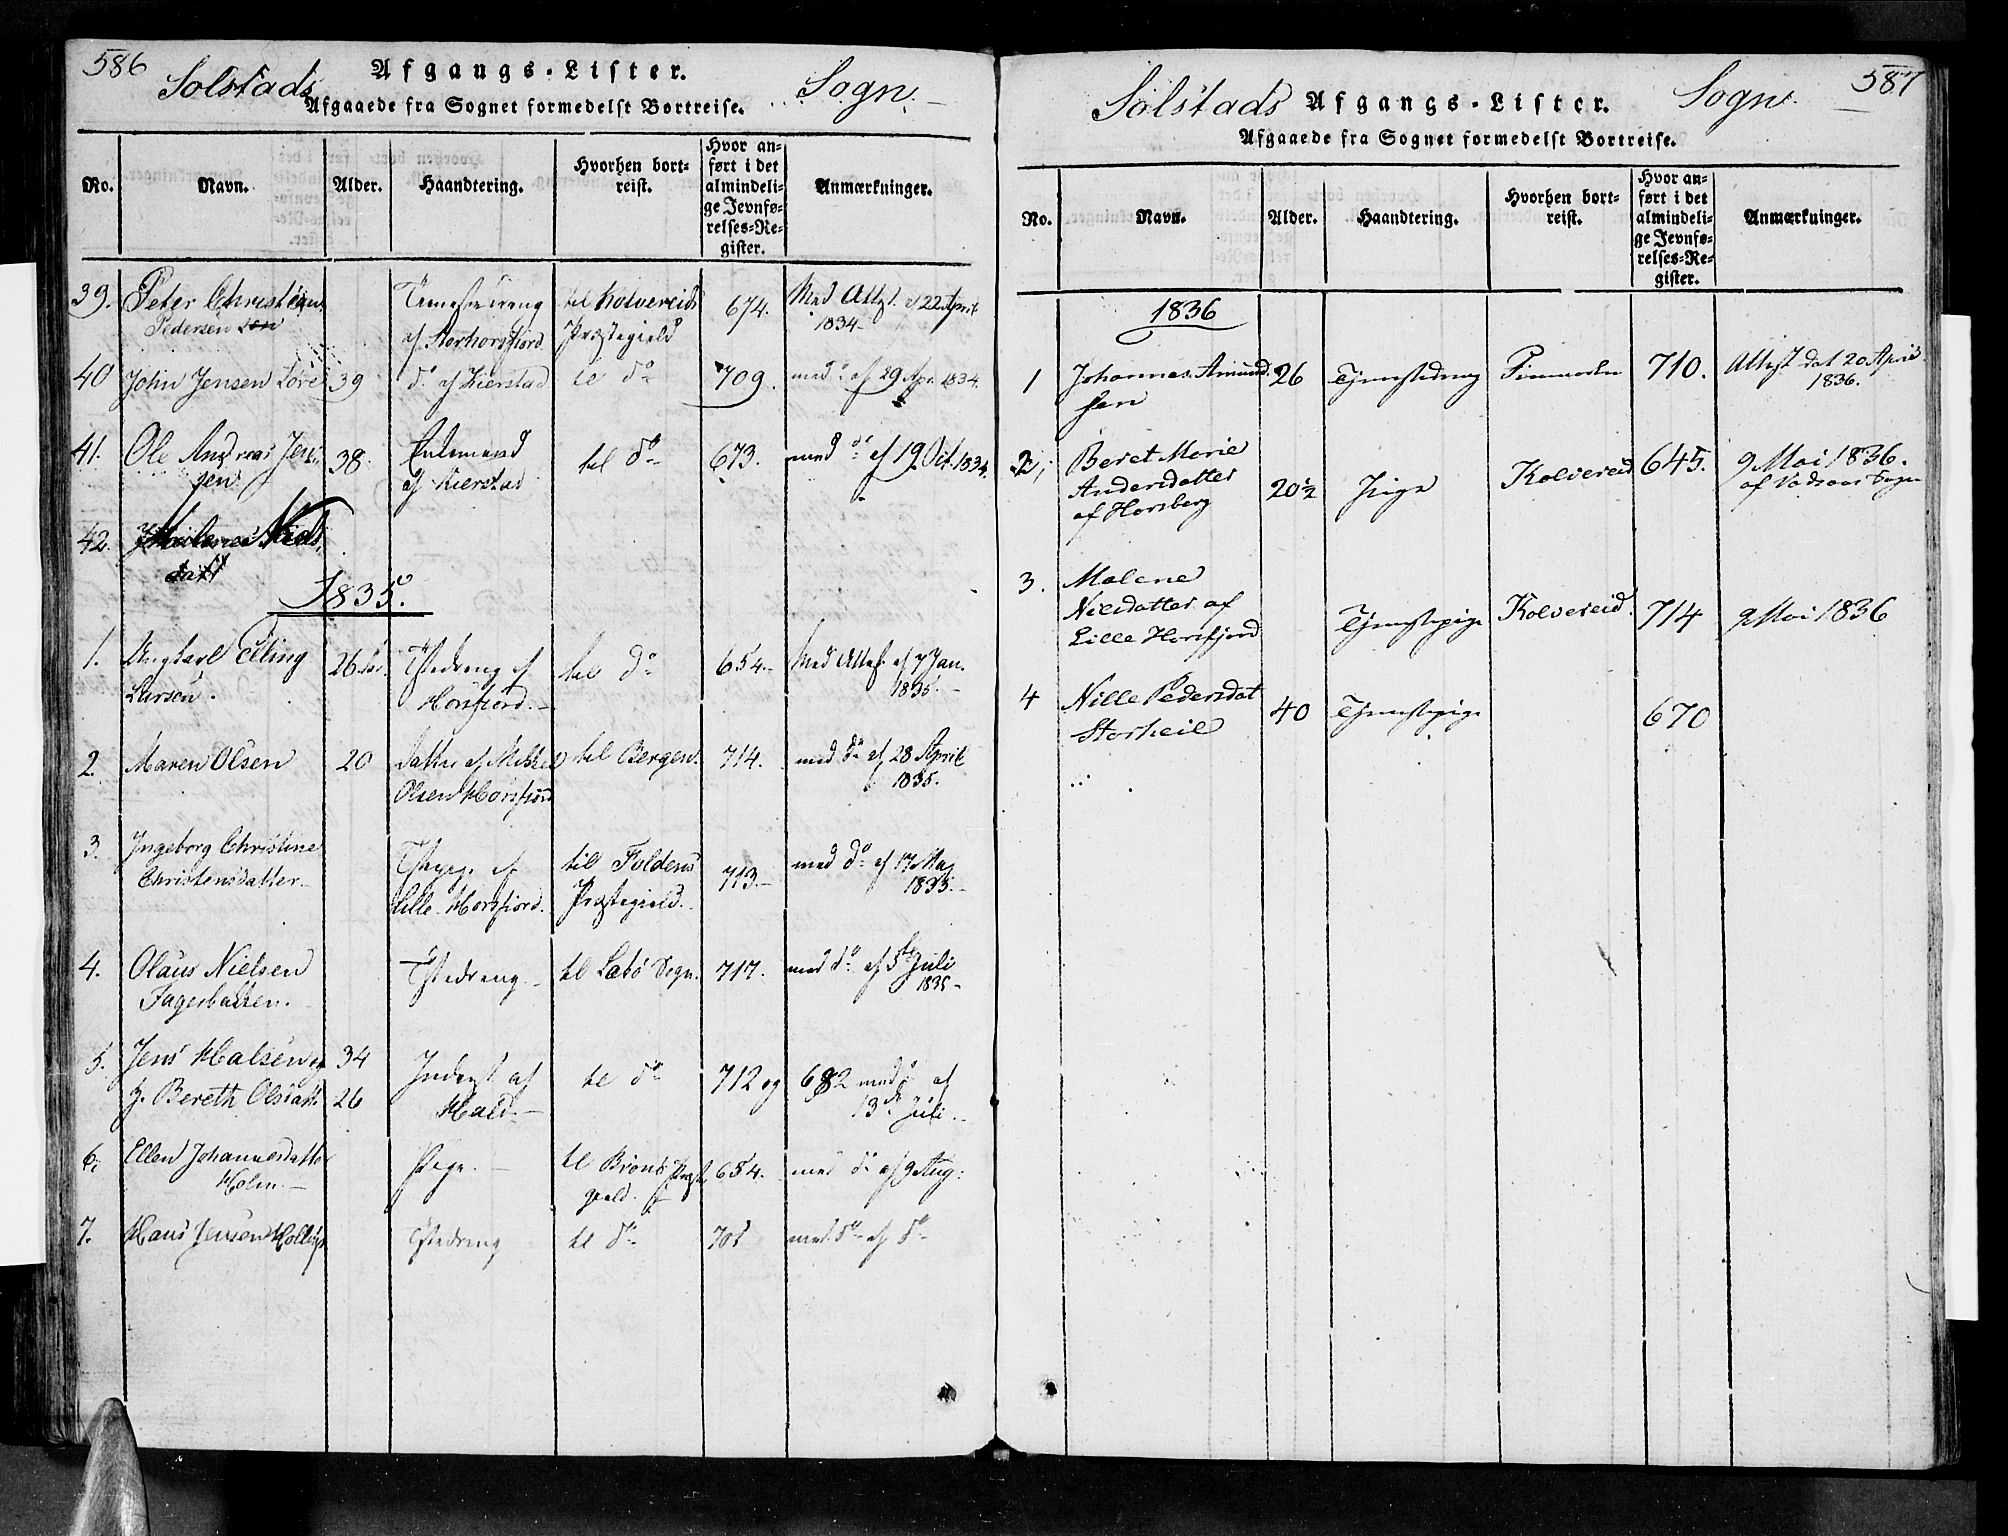 586
Solstads Afgangs-Lister. Sogn.
Afgaaede fra Sognet formedelst Bortreise.
No. Navn. Alder. Haandtering. Hvorhen bortreist. Hvor anført i det almindelige Jevnførelses-Register. Anmærkninger.
39. Peter Christian til Kolvereids 674. Med Attst. af 22 April
Pedersen Præstegield 1834
40 John Jensen 39 do af Kierstad til do 709. med do af 29 Apr. 1834.
41. Ole Andreas Jen- 38. til do 673. med do af 19 Oct. 1834.
sen af Kierstad
42. Niels
datt
1835.
1. Ungkarl Elling 26 Tjdreng af til do 654. Med Attest af 7 Jan.
Larsen. Horsfiord. 1835.
2. Maren Olsen 20 Datter af Mikkel til Bergen 714. med do af 28 April
Olsen Horsfiord 1835.
3. Ingeborg Christine af til Foldens 713. med do af 17 Maj
Christensdatter Lille Horsfiord. Præstegield. 1835.
4. Olaus Nielsen Tjdreng til Sogn. 717. med do af 5te Juli
Fagerbakken. 1835
5. Jens Halsen og 34 Inderst af til do 712 og 682 med do af
H. Bereth Olsdatt. 26 Hald 13de Juli.
6. Ellen Johannesdatter Pige. til Brønø Præste 654. med do af 9 Aug:
Holm. gield.
7. Hans Jensen Tjdreng til do 701 med do af do
587
Solstads Afgangs-Lister. Sogn.
Afgaaede fra Sognet formedelst Bortreise.
No. Navn. Alder. Haandtering. Hvorhen bortreist. Hvor anført i det almindelige Jevnførelses-Register. Anmærkninger.
1836
1 Johannes Amund- 26 Tjenestedreng Finmarken 710. Attest dat 20 April
sen 1836.
2, Beret Marie 20½ Pige Kolvereid 645. 9 Mai 1836.
Andersdatter af Vadsaas Sogn
af Horsberg
3. Malene
Nilsdatter af Tjenestepige Kolvereid. 714 9 Mai 1836
Lille Horsfjord
4 Nille Pedersdat 40 Tjenestepige 670
Storheil